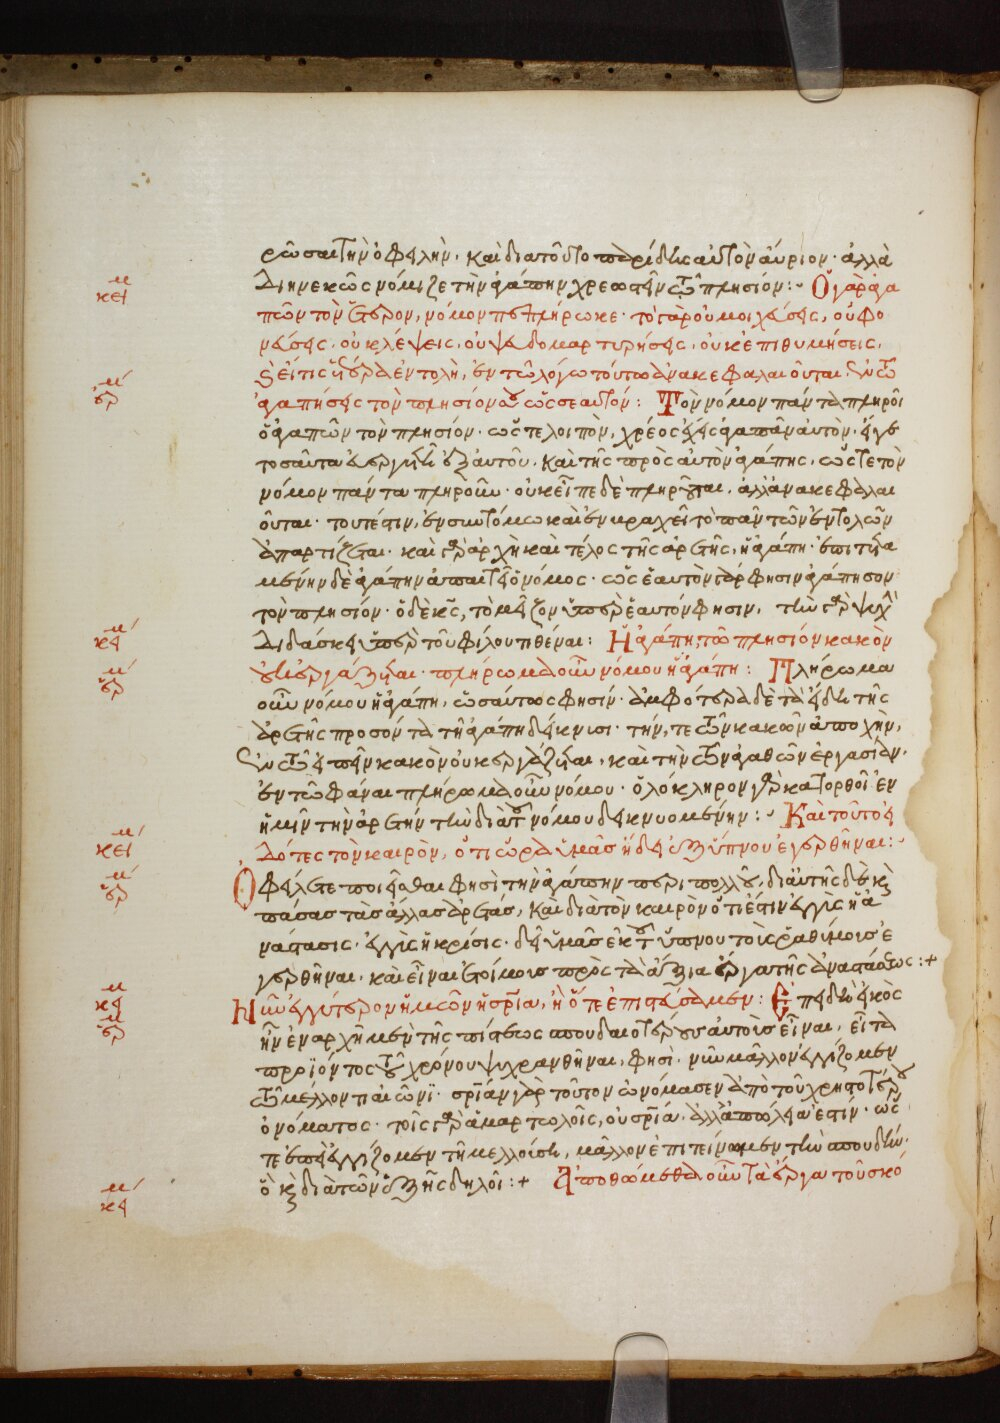 ρῶσαι τὴν ὀφειλὴν, καὶ διατοῦτο παρίδης αὐτὸν αὔριον· ἀλλὰ
διηνεκῶς νόμιζε τὴν ἀγάπην χρεωστεῖν τῶ πλησίον: Ὁ γὰρ ἀγα
κεί
πῶν τὸν ἕτερον, νόμον πεπλήρωκε· τὸ γὰρ οὐ μοιχεύσεις, οὐ φο
νεύσεις, οὐ κλέψεις, οὐ ψευδομαρτυρήσεις, οὐκ ἐπιθυμήσεις,
καὶ εἴ τις ἑτέρα ἐντολὴ, ἐν τῶ λόγω τούτω ἀνακεφαλαιοῦται, ἐν τῶ
ἑρ
ἀγαπήσεις τὸν πλησίον σου ὡς σεαυτόν: Τὸν νόμον πάντα πληροῖ
ὁ ἀγαπῶν τὸν πλησίον· ὥστε λοιπὸν, χρέος ἔχεις ἀγαπᾶν αὐτὸν,
τοσαῦτα εὐεργετηθεὶς ἐξ αὐτοῦ, καὶ τῆς πρὸς αὐτὸν ἀγάπης, ὥστε τὸν
νόμον πάντα πληροῦν· οὐκ εἶπε δὲ πληροῦται, ἀλλ' ἀνακεφαλαι
οῦται· τουτέστιν, ἐν συντόμω καὶ ἐν βραχεῖ τὸ πᾶν τῶν ἐντολῶν
ἀπαρτίζεται· καὶ γὰρ ἀρχὴ καὶ τέλος τῆς ἀρετῆς, ἡ ἀγάπη· ἐπιτετα
μένην δὲ ἀγάπην ἀπαιτεῖ ὁ νόμος· ὡς ἑαυτὸν γάρ φησιν ἀγάπησον
τὸν πλησίον· ὁ δὲ χς, τὸ μεῖζον ὑπὲρ ἑαυτόν φησιν, τὴν γὰρ ψυχὴν
διδάσκει ὑπὲρ τοῦ φίλου τιθέναι: Ἡ ἀγάπη τῶ πλησίον κακὸν
κεί
οὐκ ἐργάζεται· πλήρωμα οὖν νόμου ἡ ἀγάπη: Πλήρωμα
ἑρ
οὖν νόμου ἡ ἀγάπη, ὡσαύτως φησίν· ἀμφότερα δὲ τὰ εἴδη τῆς
ἀρετῆς προσόντα τῆ ἀγάπη δείκνυσι· τήν, τε τῶν κακῶν ἀποχὴν,
ἐν τῶ εἰπεῖν κακὸν οὐκ ἐργάζεται, καὶ τὴν τῶν ἀγαθῶν ἐργασίαν,
ἐν τῶ φάναι πλήρωμα οὖν νόμου· ὁλόκληρον γὰρ κατορθοῖ ἐν
ἡμῖν τὴν ἀρετὴν τὴν διὰ τοῦ νόμου δεικνυομένην: Καὶ τοῦτο εἰ
κεί
δότες τὸν καιρὸν, ὅτι ὥρα ὑμᾶς ἤδη ἐξ ὕπνου ἐγερθῆναι:
ἑρ
Ὀφείλετε ποιεῖσθαι φησὶ τὴν ἀγάπην περὶ πολλοῦ, δι' αὐτῆς δὲ καὶ
πάσας τὰς ἄλλας ἀρετάς, καὶ διὰ τὸν καιρὸν ὅτι ἐστὶν ἐγγὺς ἡ ἀ
νάστασις, ἐγγὺς ἡ κρίσις· δεῖ ὑμᾶς ἐκ τοῦ ὕπνου τοῖς ῥαθύμοις ἐ
γερθῆναι, καὶ εἶναι ἑτοίμους πρὸς τὰ ἄξια ἔργα τῆς ἀναστάσεως:+
κεί
Νῦν ἐγγύτερον ἡμῶν ἡ σρία, ἢ ὅτε ἐπιστεύσαμεν: Ἐπειδὴ εἰκὸς
ἑρ
ἦν ἐν ἀρχῆ μὲν τῆς πίστεως σπουδαιοτέρους αὐτοὺς εἶναι, εἶτα
προϊόντος τοῦ χρόνου ψυχρανθῆναι, φησὶ, νῦν μᾶλλον ἐγγίζομεν
τῶ μέλλοντι αἰῶνι· σρίαν γὰρ τοῦτον ὠνόμασεν ἀπὸ τοῦ χρηστοτέρου
ὀνόματος· τοῖς γὰρ ἁμαρτωλοῖς, οὐ σρία, ἀλλ' ἀπώλειά ἐστίν· ὥς
τε ἐπεὶ ἐγγίζομεν τῆ μελλούση, μᾶλλον ἐπιτείνωμεν τὴν σπουδὴν,
ὃ καὶ διὰ τῶν ἑξῆς δηλοῖ:+ Ἀποθώμεθα οὖν τὰ ἔργα τοῦ σκό
κεί